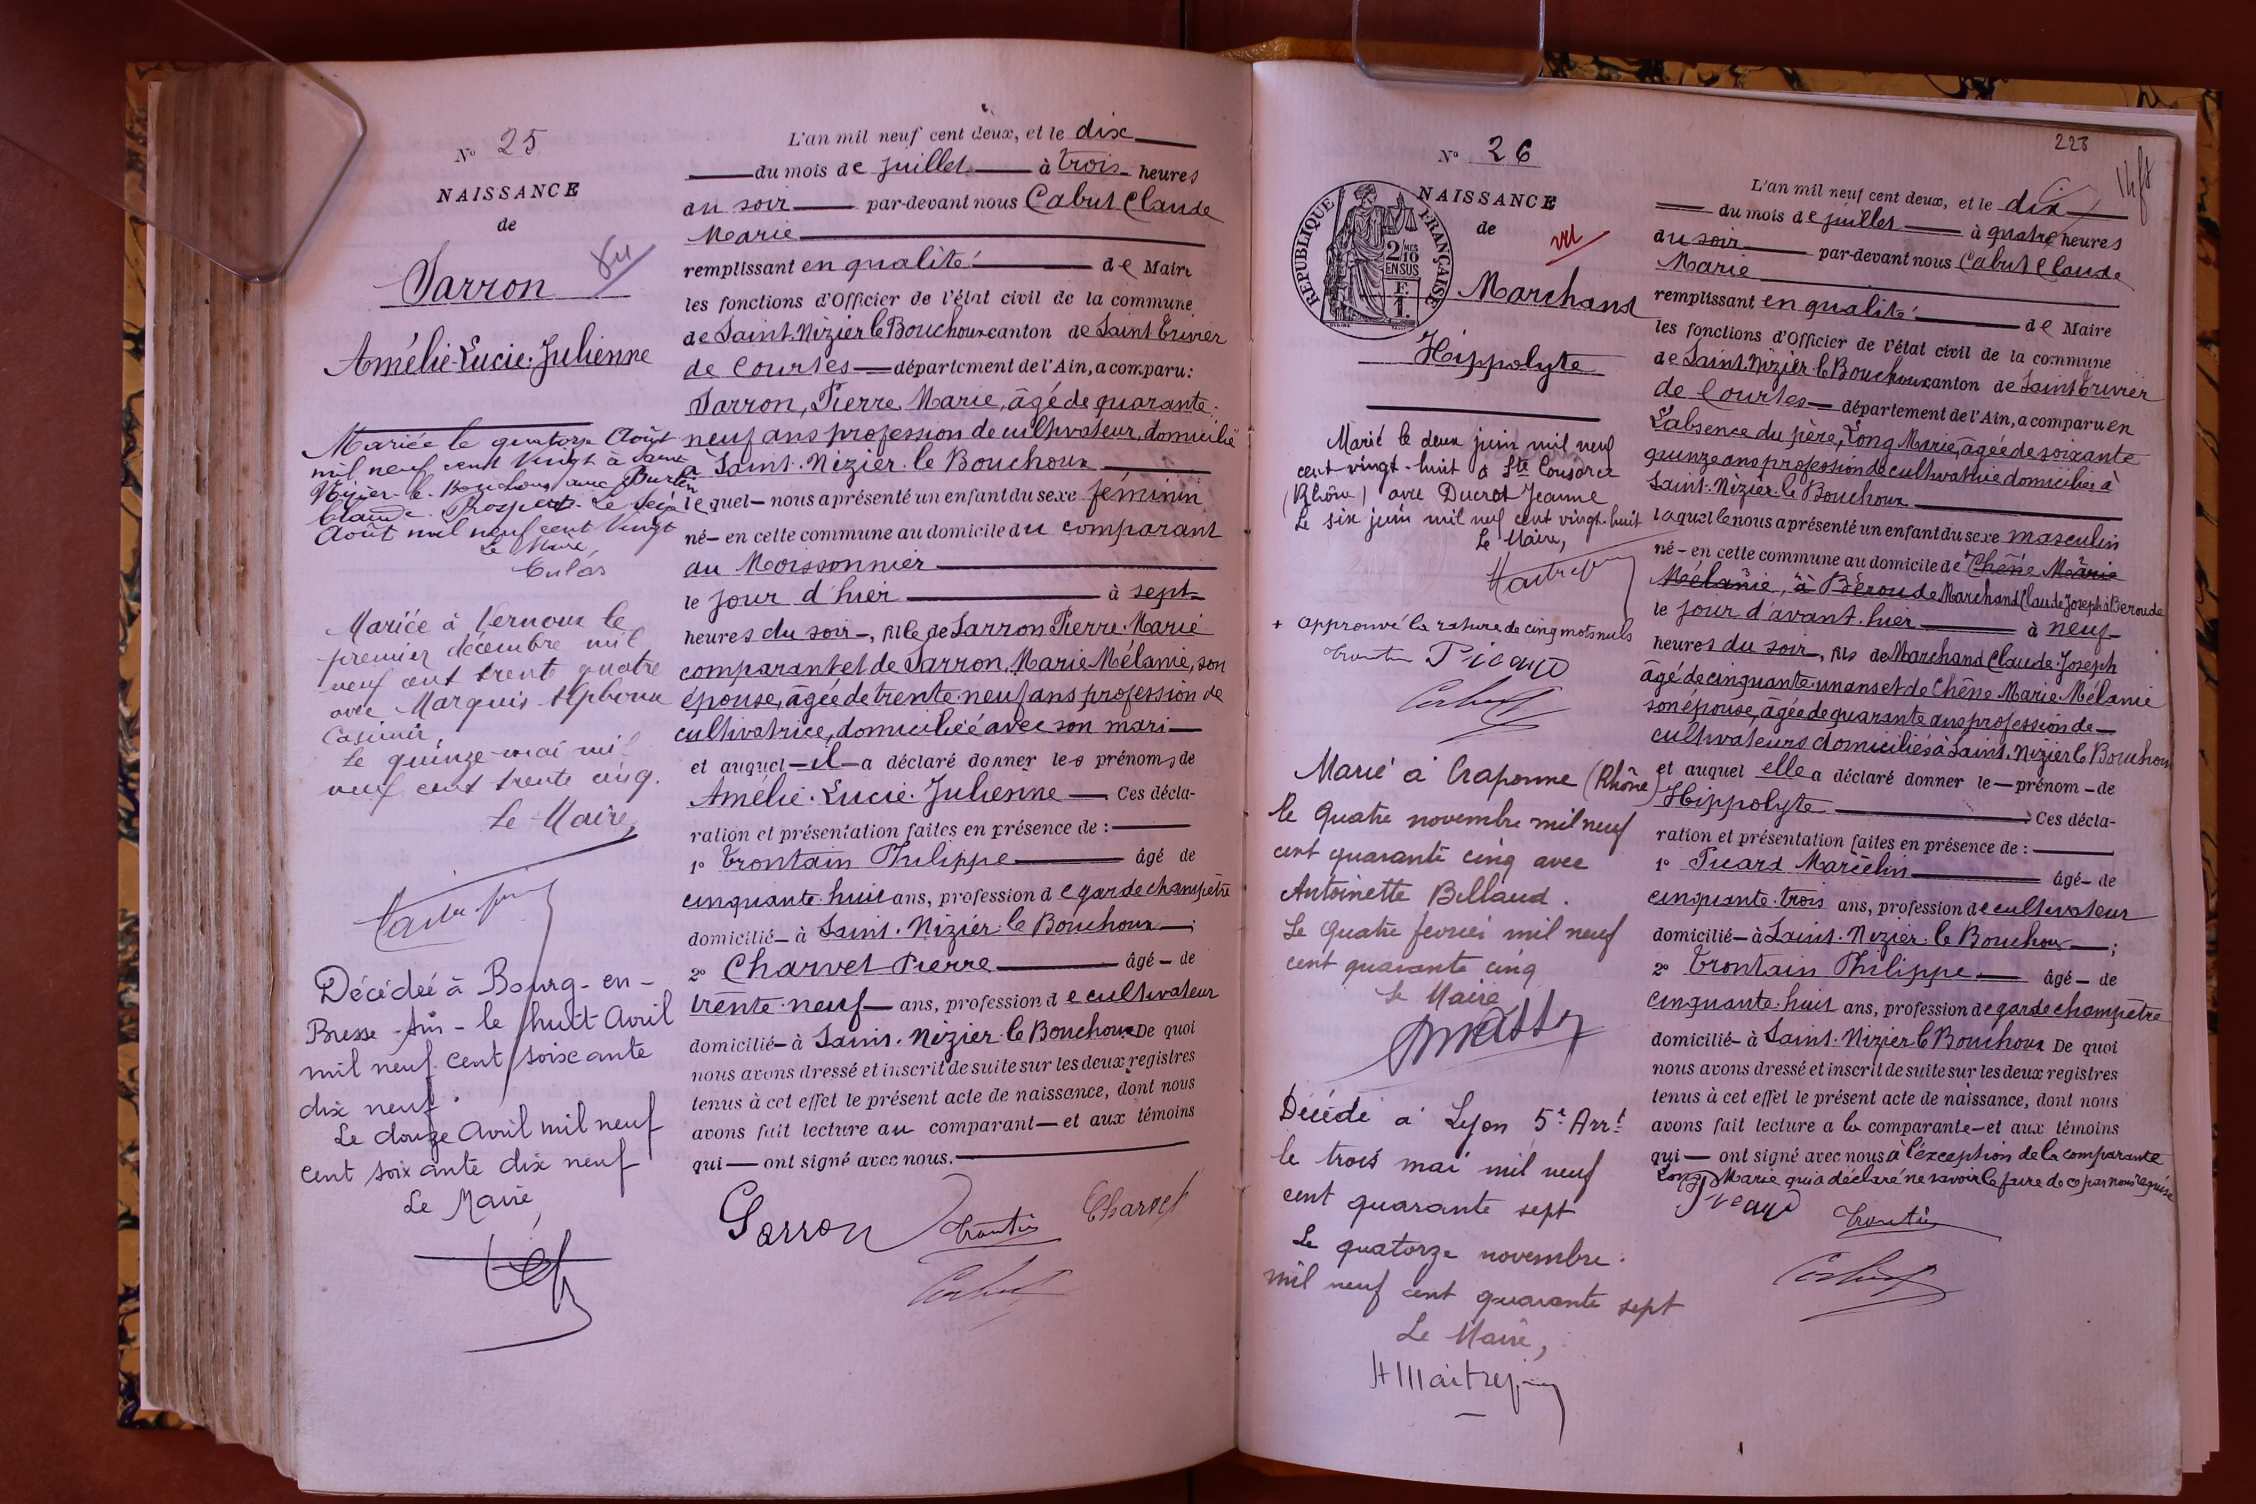 N° 25
NAISSANCE
de
vu
Sarron
Amélie-Lucie-Julienne
Mariée le quatorze Août
mil neuf cent vingt à Saint
Nizier-le-Bouchoux avec Burtin
Claude Prosper. Le seize
Août mil neuf cent vingt
Le Maire,
Mariée à Vernoux le
premier décembre mil
neuf cent trente quatre
avec Marquis Alphonse
Casimir.
Le quinze mai mil
neuf cent trente cinq.
Le Maire,
Décédée à Bourg-en-
Bresse-Ain-le huit Avril
mil neuf cent soixante
dix neuf.
Le douze Avril mil neuf
cent soixante dix neuf
Le Maire,
L'an mil neuf cent deux, et le dix
du mois de Juillet à trois heures
du soir par-devant nous Cabut Claude
Marie
remplissant en qualité de Maire
les fonctions d'Officier de l'état civil de la commune
de Saint-Nizier le Bouchoux canton de Saint Trivier
de Courtes département de l'Ain, a comparu:
Sarron, Pierre Marie, âgé de quarante-
neuf ans profession de cultivateur, domicilié
à Saint-Nizier-le Bouchoux
lequel nous a présenté un enfant du sexe féminin
né en cette commune au domicile du comparant
au Moissonnier
le jour d'hier à sept
heures du soir, fille de Sarron Pierre Marie
comparant et de Sarron, Marie Mélanie, son
épouse, âgée de trente-neuf ans profession de
cultivatrice, domiciliée avec son mari
et auquel il a déclaré donner les prénoms de
Amélie-Lucie-Julienne Ces décla-
ration et présentation faites en présence de :
1° Trontain Philippe âgé de
cinquante-huit ans, profession de garde champêtre
domicilié à Saint-Nizier-le Bouchoux ;
2° Charvet Pierre âgé de
trente-neuf ans, profession de cultivateur
domicilié à Saint-Nizier-le Bouchoux De quoi
nous avons dressé et inscrit de suite sur les deux registres
tenus à cet effet le présent acte de naissance, dont nous
avons fait lecture au comparant et aux témoins
qui ont signé avec nous.
Sarron Trontin Charvet
Cabut
223
N° 26
NAISSANCE
de
vu
RÉPUBLIQUE FRANÇAISE
2/10 MES EN SUS
F. 1.
Marchand
Hippolyte
Marié le deux juin mil neuf
cent vingt-huit à Ste Consorce
(Rhône) avec Ducrot Jeanne
Le six juin mil neuf cent vingt-huit
Le Maire,
+ approuvé la rature de cinq mots nuls
Trontin Picard
Cabut
Marié à Craponne (Rhône)
le quatre novembre mil neuf
cent quarante cinq avec
Antoinette Billaud.
Le quatre fevrier mil neuf
cent quarante cinq
Le Maire
Décédé à Lyon 5e Arrt
le trois mai mil neuf
cent quarante sept
Le quatorze novembre
mil neuf cent quarante sept
Le Maire,
L'an mil neuf cent deux, et le dix
du mois de juillet à quatre heures
du soir par-devant nous Cabut Claude
Marie
remplissant en qualité de Maire
les fonctions d'Officier de l'état civil de la commune
de Saint-Nizier le Bouchoux canton de Saint Trivier
de Courtes département de l'Ain, a comparu en
L'absence du père, Long Marie, âgée de soixante
quinze ans profession de cultivatrice domiciliée à
Saint-Nizier-le Bouchoux
laquelle nous a présenté un enfant du sexe masculin
né en cette commune au domicile de + Chêne Marie
Mélanie, à Béroude Marchand Claude Joseph à Beroude
le jour d'avant-hier à neuf
heures du soir, fils de Marchand Claude-Joseph
âgé de cinquante-un ans et de Chêne Marie-Mélanie
son épouse, âgée de quarante ans profession de
cultivateurs domiciliés à Saint-Nizier le Bouchoux
et auquel elle a déclaré donner le prénom de
Hippolyte Ces décla-
ration et présentation faites en présence de :
1° Picard Marcelin âgé de
cinquante-trois ans, profession de cultivateur
domicilié à Saint-Nizier-le Bouchoux ;
2° Trontain Philippe âgé de
cinquante-huit ans, profession de garde champêtre
domicilié à Saint-Nizier le Bouchoux De quoi
nous avons dressé et inscrit de suite sur les deux registres
tenus à cet effet le présent acte de naissance, dont nous
avons fait lecture a la comparante et aux témoins
qui ont signé avec nous à l'exception de la comparante
Long Marie qui a déclaré ne savoir le faire de ce par nous requise
Picard Trontin
Cabut